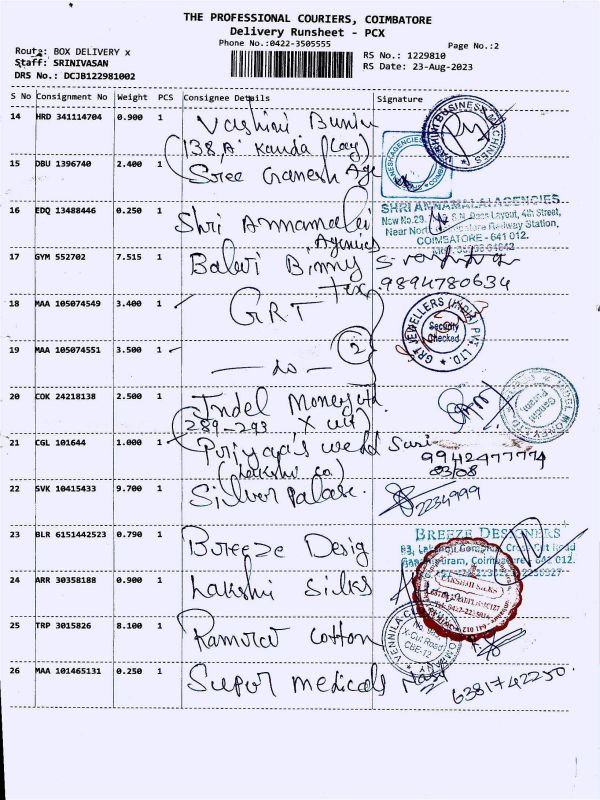 THE PROFESSIONAL COURIERS, COIMBATORE
Delivery Runsheet - PCX
Phone No.:0422-3505555
Page No.:2
Route: BOX DELIVERY x
RS No.: 1229810
Staff: SRINIVASAN
RS Date: 23-Aug-2023
DRS No.: DCJB122981002
S No Consignment No Weight PCS Consignee Details Signature
14 HRD 341114704 0.900 1 Vashini
VASHINI BUSINESS MACHINES
138,A Kamda
15 DBU 1396740 2.400 1 Sree Ganesh Age
16 EDQ 13488446 0.250 1 Shri Annamalai Agencies
SHRI ANNAMALAI AGENCIES
Layout, 4th Street,
Near North Coimbatore Railway Station,
COIMBATORE - 641 012.
17 GYM 552702 7.515 1 Balaji Binny Tex
9894780634
18 MAA 105074549 3.400 1 GRT
GRT JEWELLERS (INDIA) PVT. LTD.
Security Checked
19 MAA 105074551 3.500 1 — do — 2
20 COK 24218138 2.500 1 Indel Money Ltd
INDEL MONEY LTD
(289-293 X cut)
21 CGL 101644 1.000 1 Priyaya's wedd Sari
(Lakshi ca)
03/08
22 SVK 10415433 9.700 1 Silver Palace.
2234999
23 BLR 6151442523 0.790 1 Breeze Desig
BREEZE DESIGNERS
83, Lakshmi Complex, Cross Cut Road
Gandhipuram, Coimbatore - 641 012.
24 ARR 30358188 0.900 1 Lakshi Silks
LAKSHMI SILKS
25 TRP 3015826 8.100 1 Ramraj Cotton
VENNILA
X-Cut Road
CBE-12
26 MAA 101465131 0.250 1 Super Medicals
6381742250